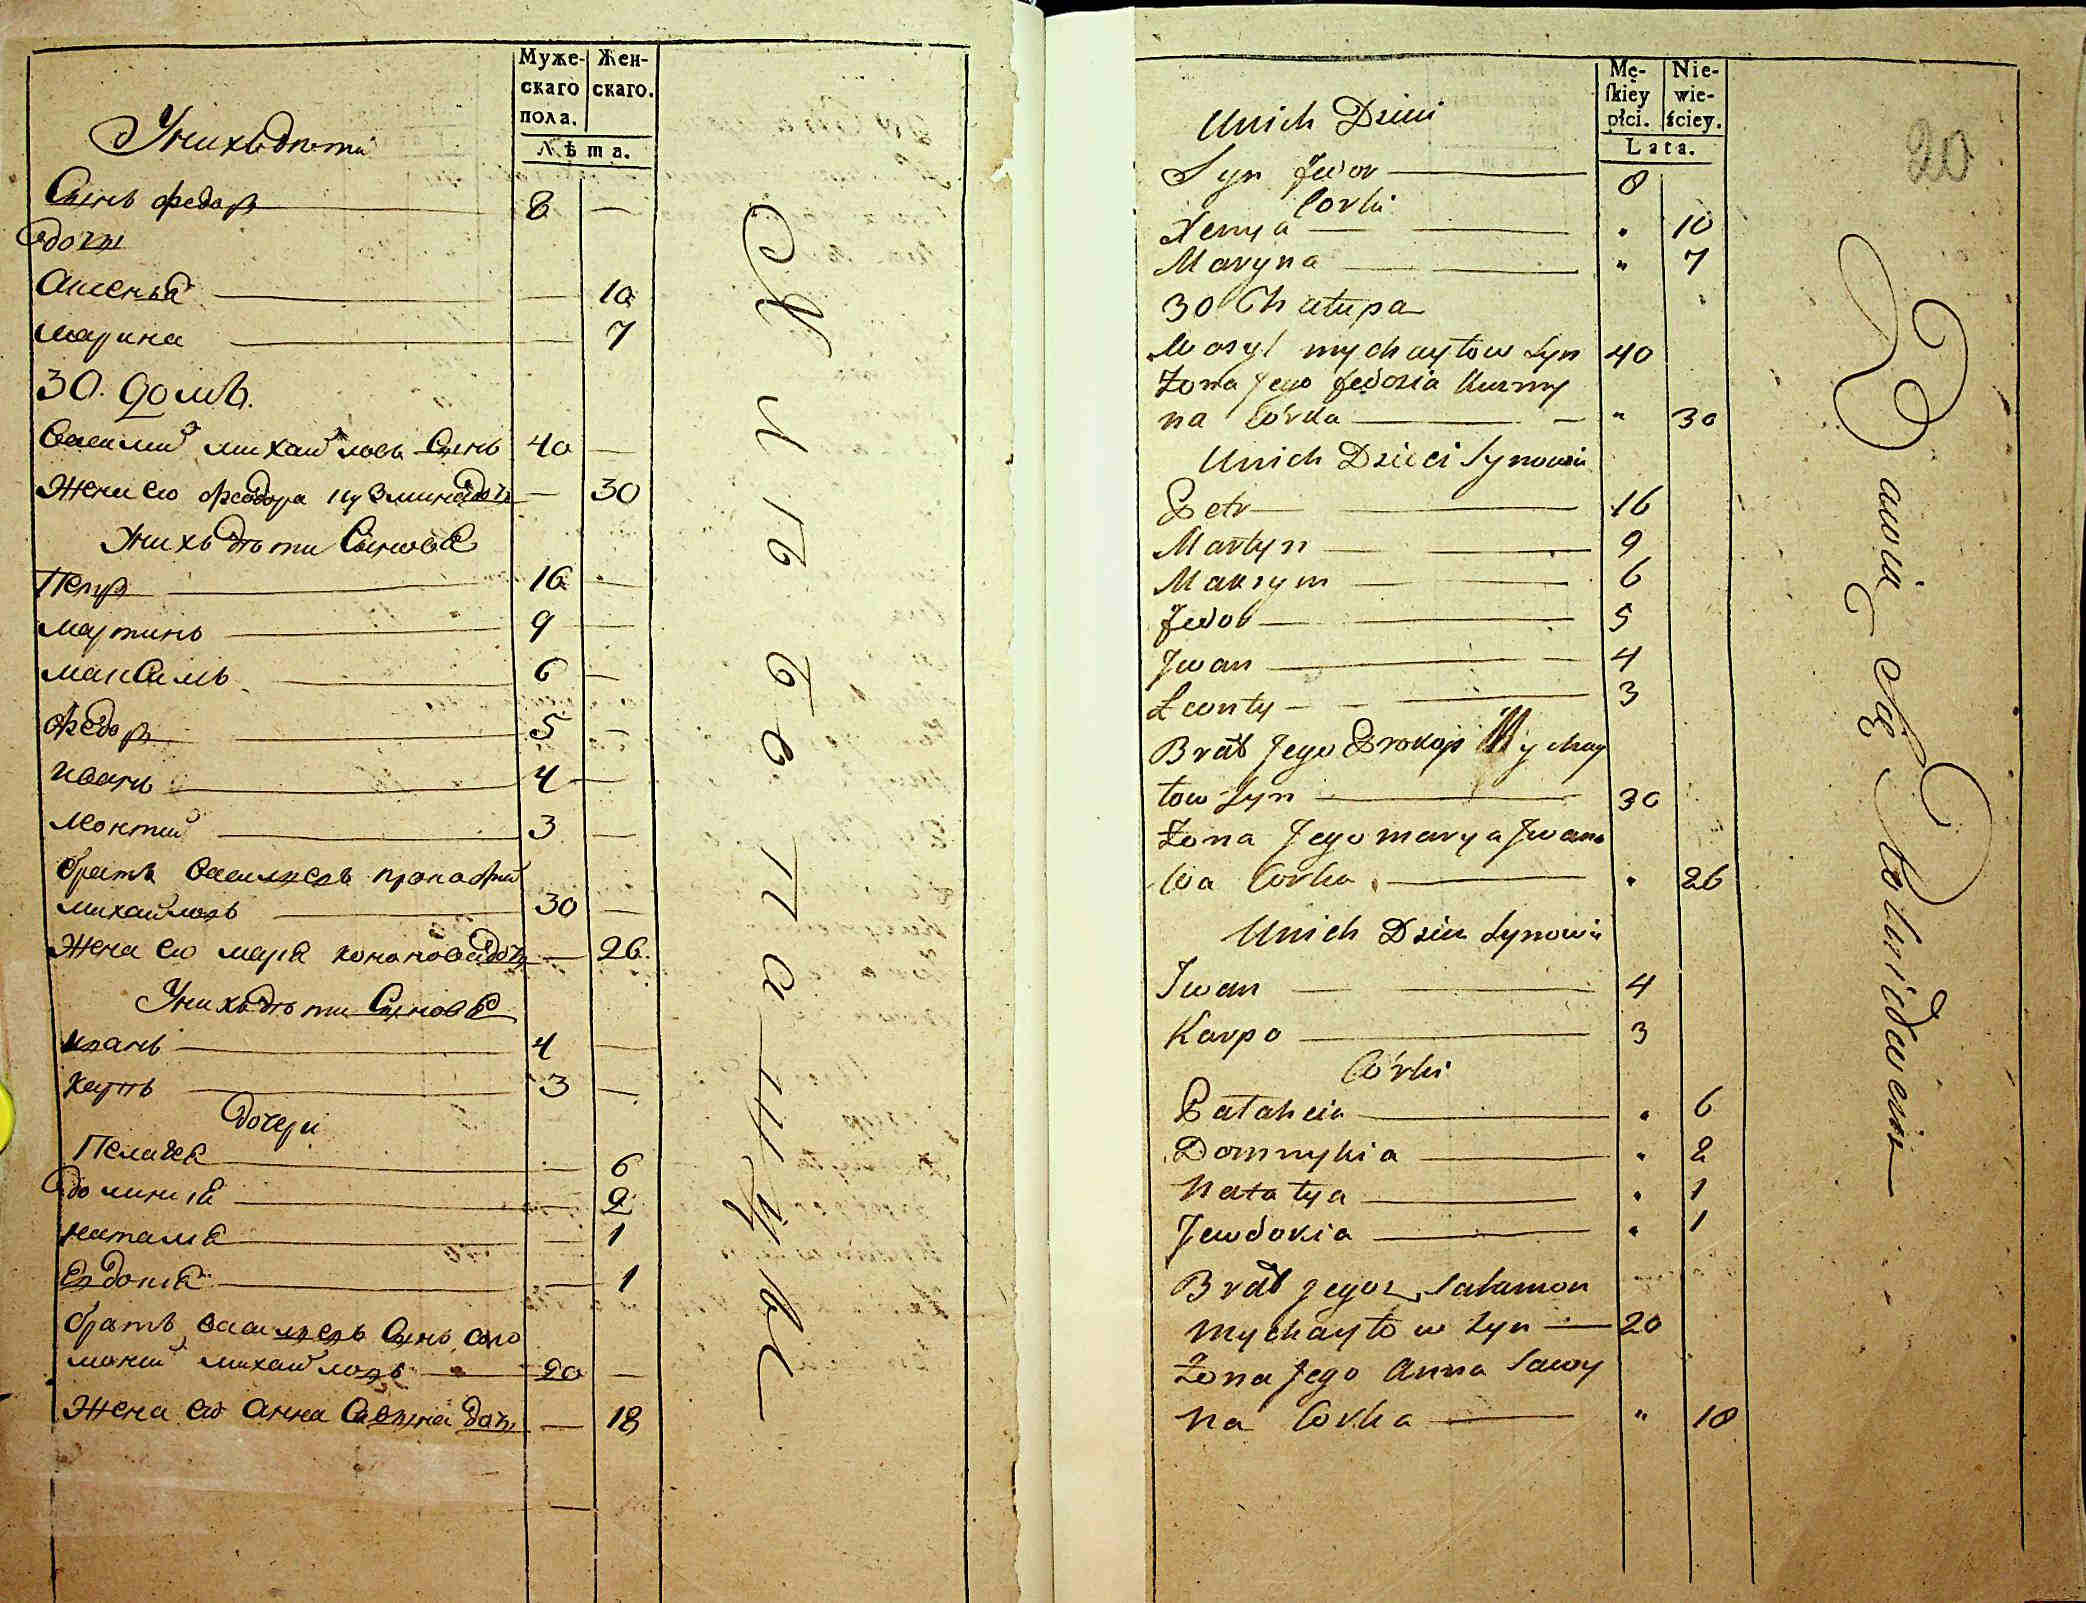 Муже-
скаго
пола.
Жен-
скаго.
Лѣта.
У нихъ дѣти
Сынъ федоръ 8 —
дочи
Аксенья — 10
марина — 7
30. домъ.
Василий михайловъ Сынъ 40 —
Жена его феодора кузмина дочь — 30
У нихъ дѣти Сыновья
Петръ 16 —
мартинъ 9 —
максимъ 6 —
федоръ 5 —
иванъ 4 —
леонтий 3 —
братъ василиевъ прокофий
михайловъ 30 —
Жена его марья кононова дочь — 26.
У нихъ дѣти Сыновья
иванъ 4 —
карпъ 3 —
дочери
Пелагея — 6
доминикия — 2
наталия — 1
Евдокия — 1
братъ василиевъ Сынъ соло
моний михайловъ 20 —
Жена его Анна Саввина дочь — 18
—
20
Mę-
ſkiey
płci.
Nie-
wie-
ściey.
Lata.
Unich Dzieci
Syn fedor 8
Corki
Xenya „ 10
Maryna „ 7
30 Chałupa
Wasyl mychayłow Syn 40
Żona Jego fedosia Kuzmy
na Córka „ 30
Unich Dzieci Synowie
Petr 16
Martyn 9
Maksym 6
fedor 5
Jwan 4
Leonty 3
Brat Jego Prokop Mychay
łow Syn 30
Żona Jego marya Jwano
wa Corka „ 26
Unich Dzieci Synowie
Jwan 4
Karpo 3
Córki
Pałaheia „ 6
Domnykia „ 2
Natałya „ 1
Jewdokia „ 1
Brat Jego Sałamon
Mychayłow Syn 20
Żona Jego Anna Sawy
na Corka „ 18